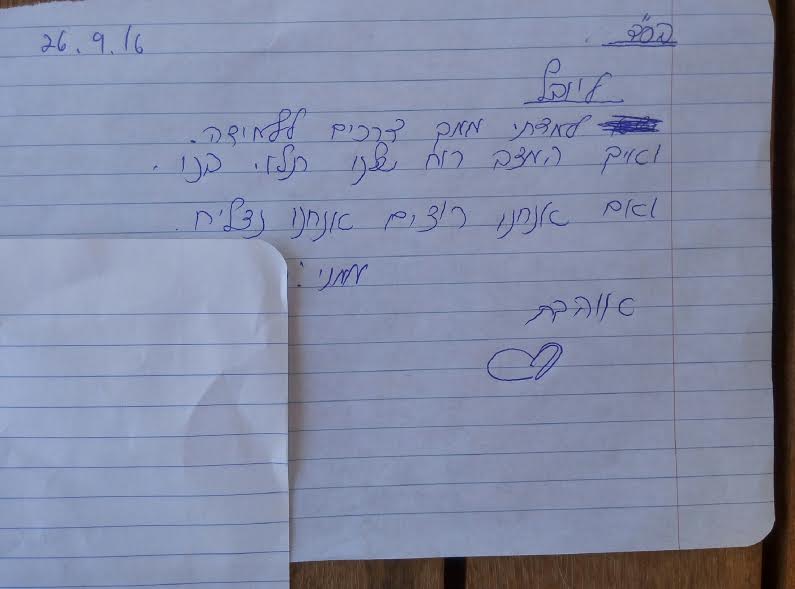 26.9.16 בס"ד
ליובל
למדתי ממך דרכים ללמידה.
ואיך המצב רוח שלנו תלוי בנו.
ואם אנחנו רוצים אנחנו נצליח.
ממני:
אוהבת